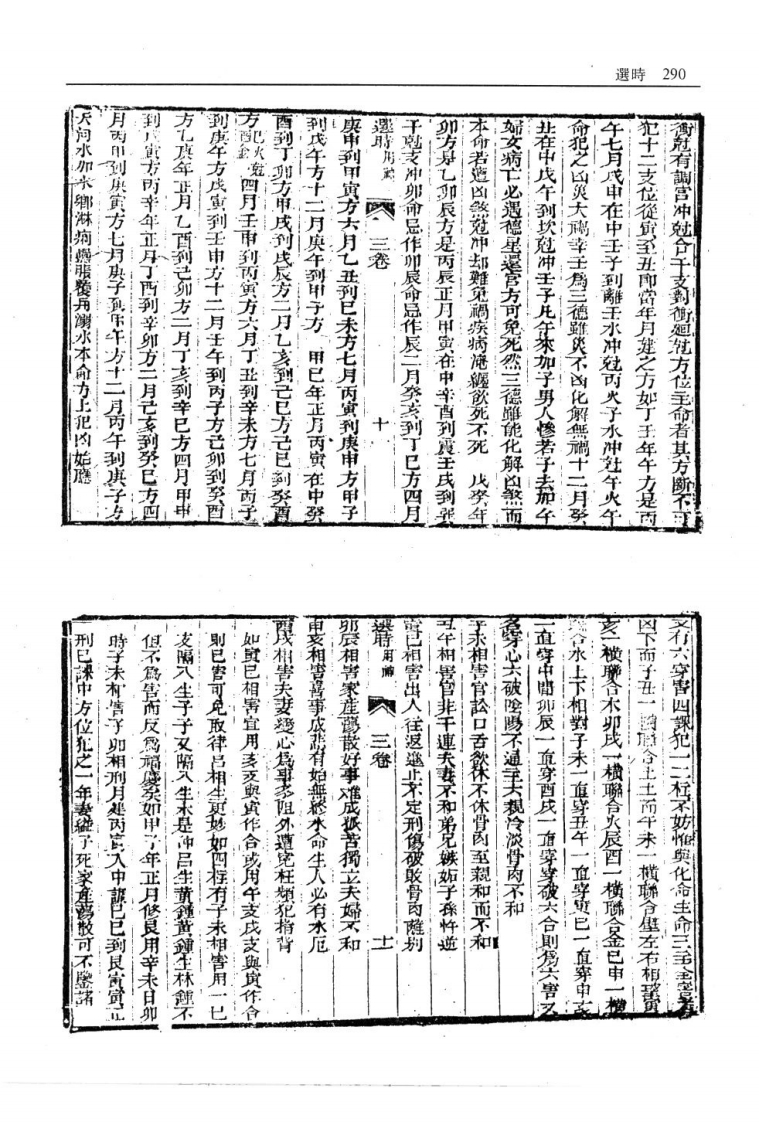 選時 290
衝尅有調宮冲尅合干支對衝廻尅方位主命者其方斷不可
犯十二支位從寅至丑卽當年月建之方如丁壬年午方是丙
午七月戊申在中壬子到離壬水冲尅丙火子水冲尅午火午
命犯之凶災大禍幸壬爲三德雖災不凶化解無禍十二月癸
丑在中戊午到坎尅冲壬子凡午來加子男人慘若子去加午
婦女病亡必遇德星還宮方可免死然三德雖能化解凶煞而
本命若遭凶煞尅冲却難免禍疾病淹纏飲死不死 戊癸年
卯方是乙卯辰方是丙辰正月甲寅在中辛酉到震壬戌到巽
干尅支冲卯命忌作卯辰命忌作辰二月癸亥到丁巳方四月
選時用篇 三卷 十
庚申到甲寅方六月乙丑到己未方七月丙寅到庚申方甲子
到戊午方十二月庚午到甲子方 甲己年正月丙寅在中癸
酉到丁卯方甲戌到戊辰方二月乙亥到己巳方己巳到癸酉
方四月壬申到丙寅方六月丁丑到辛未方七月丙子
到庚午方戊寅到壬申方十二月壬午到丙子方己卯到癸酉
方乙庚年正月乙酉到己卯方二月丁亥到辛巳方四月甲申
到戊寅方丙辛年正月丁酉到辛卯方二月己亥到癸巳方四
月丙申到庚寅方七月庚子到甲午方十二月丙午到庚子方
水本命方上犯凶始應
又有六穿害四課犯一二柱不妨惟與化命生命三
凶下而子丑一橫聯合土上而午未一橫聯合壁左右相
亥一橫聯合木卯戌一橫聯合火辰酉一橫聯合金巳申一橫
聯合水上下相對子未一直穿丑午一直穿寅巳一直穿申亥
一直穿中間卯辰一直穿酉戌一直穿穿破六合則爲六害又
名穿心六破陰陽不通主六親冷淡骨肉不和
子未相害官訟口舌欲休不休骨肉至親和而不和
丑午相害官非干連夫妻不和弟兄嫉妬子孫忤逆
寅巳相害出人往返進止不定刑傷破敗骨肉離別
選時用篇 三卷 十一
卯辰相害家產蕩散好事難成孤苦獨立夫婦不和
申亥相害喜事成悲有始無終水命生人必有水厄
酉戌相害夫妻變心爲事多阻外遭冤枉類犯指背
如寅巳相害宜用亥支與寅作合或用午支戌支與寅作合
則巳害可免取律呂相生更妙如四柱有子未相害用一巳
支隔八生子子又隔八生未是仲呂生黃鍾黃鍾生林鍾不
但不爲害而反爲福慶矣如甲子年正月修艮用辛未日卯
時子未相害子卯相刑月建丙寅入中調己巳到艮寅寅
刑巳課中方位犯之一年妻縊子死家產蕩散可不鑒諸